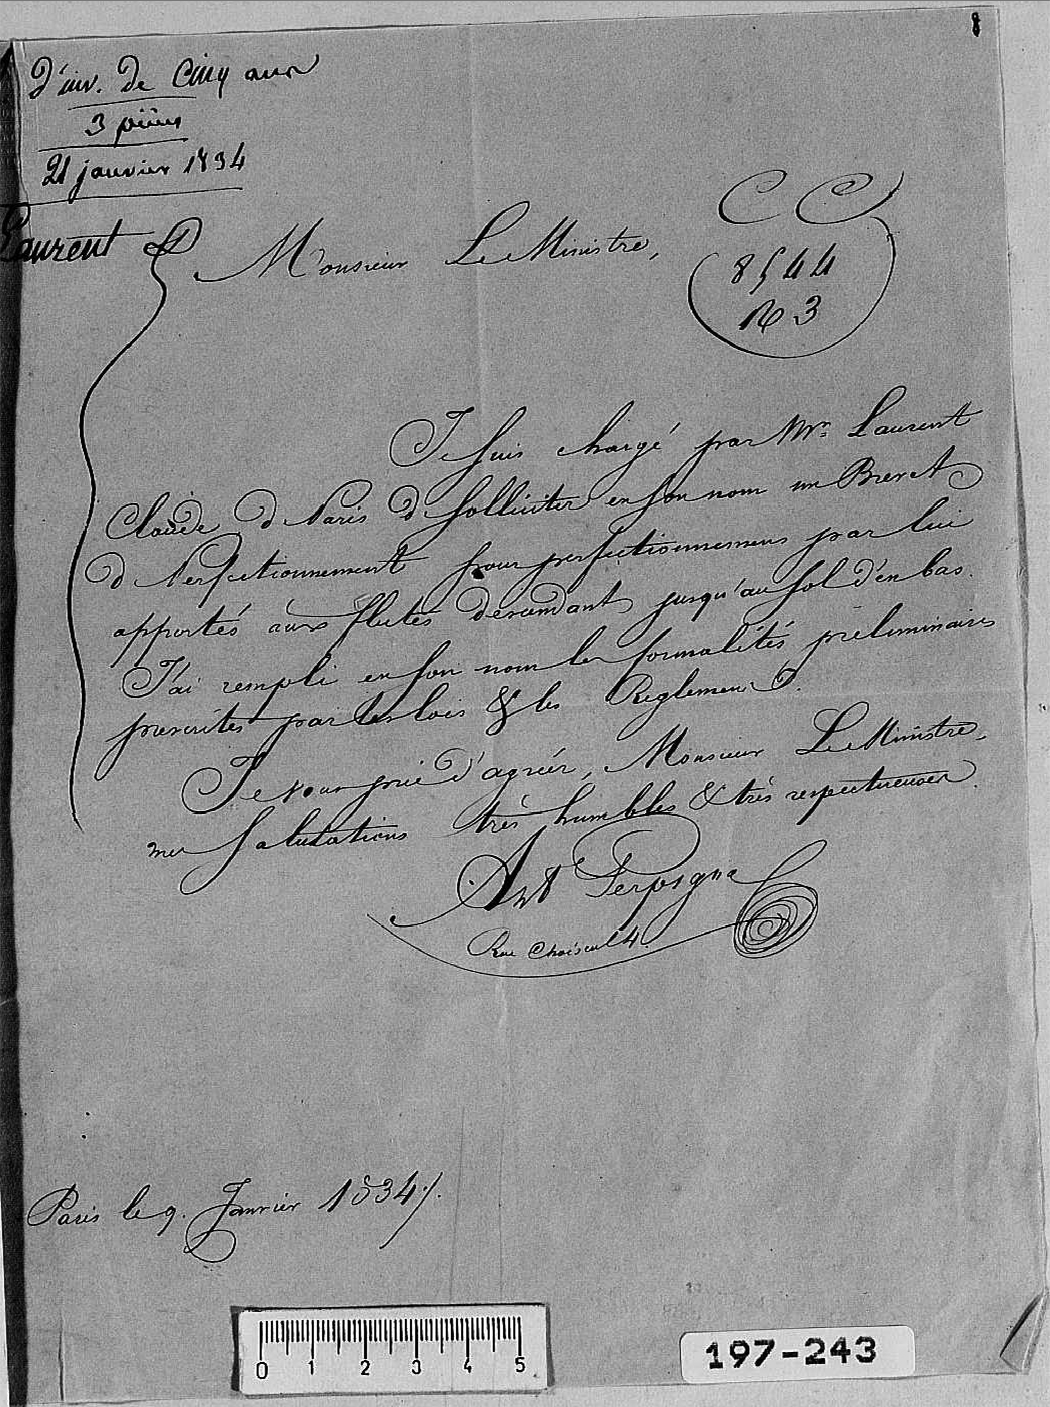 d'inv. de Cinq ans
3 pièces
21 janvier 1834
Laurent
CC
8544
No 3
Monsieur Le Ministre,
Je suis chargé par Mr. Laurent
Claude de Paris de solliciter en son nom un Brevet
de Perfectionnement pour perfectionnemens par lui
apportés aux flutes descendant jusqu'au sol d'en bas.
J'ai rempli en son nom les formalités préliminaires
prescrites par les lois & les Reglemens.
Je vous prie d'agréer, Monsieur Le Ministre,
mes salutations très humbles & très respectueuses.
Ant Perpigna
Rue Choiseul 4.
Paris le 9. Janvier 1834.
0 1 2 3 4 5
197-243